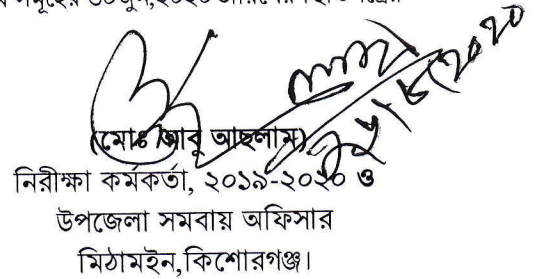 সমূহের ৩০ জুন,২০২০ তারিখের
(মোঃ আবু আছলাম)
নিরীক্ষা কর্মকর্তা, ২০১৯-২০২০ ও
উপজেলা সমবায় অফিসার
মিঠামইন,কিশোরগঞ্জ।